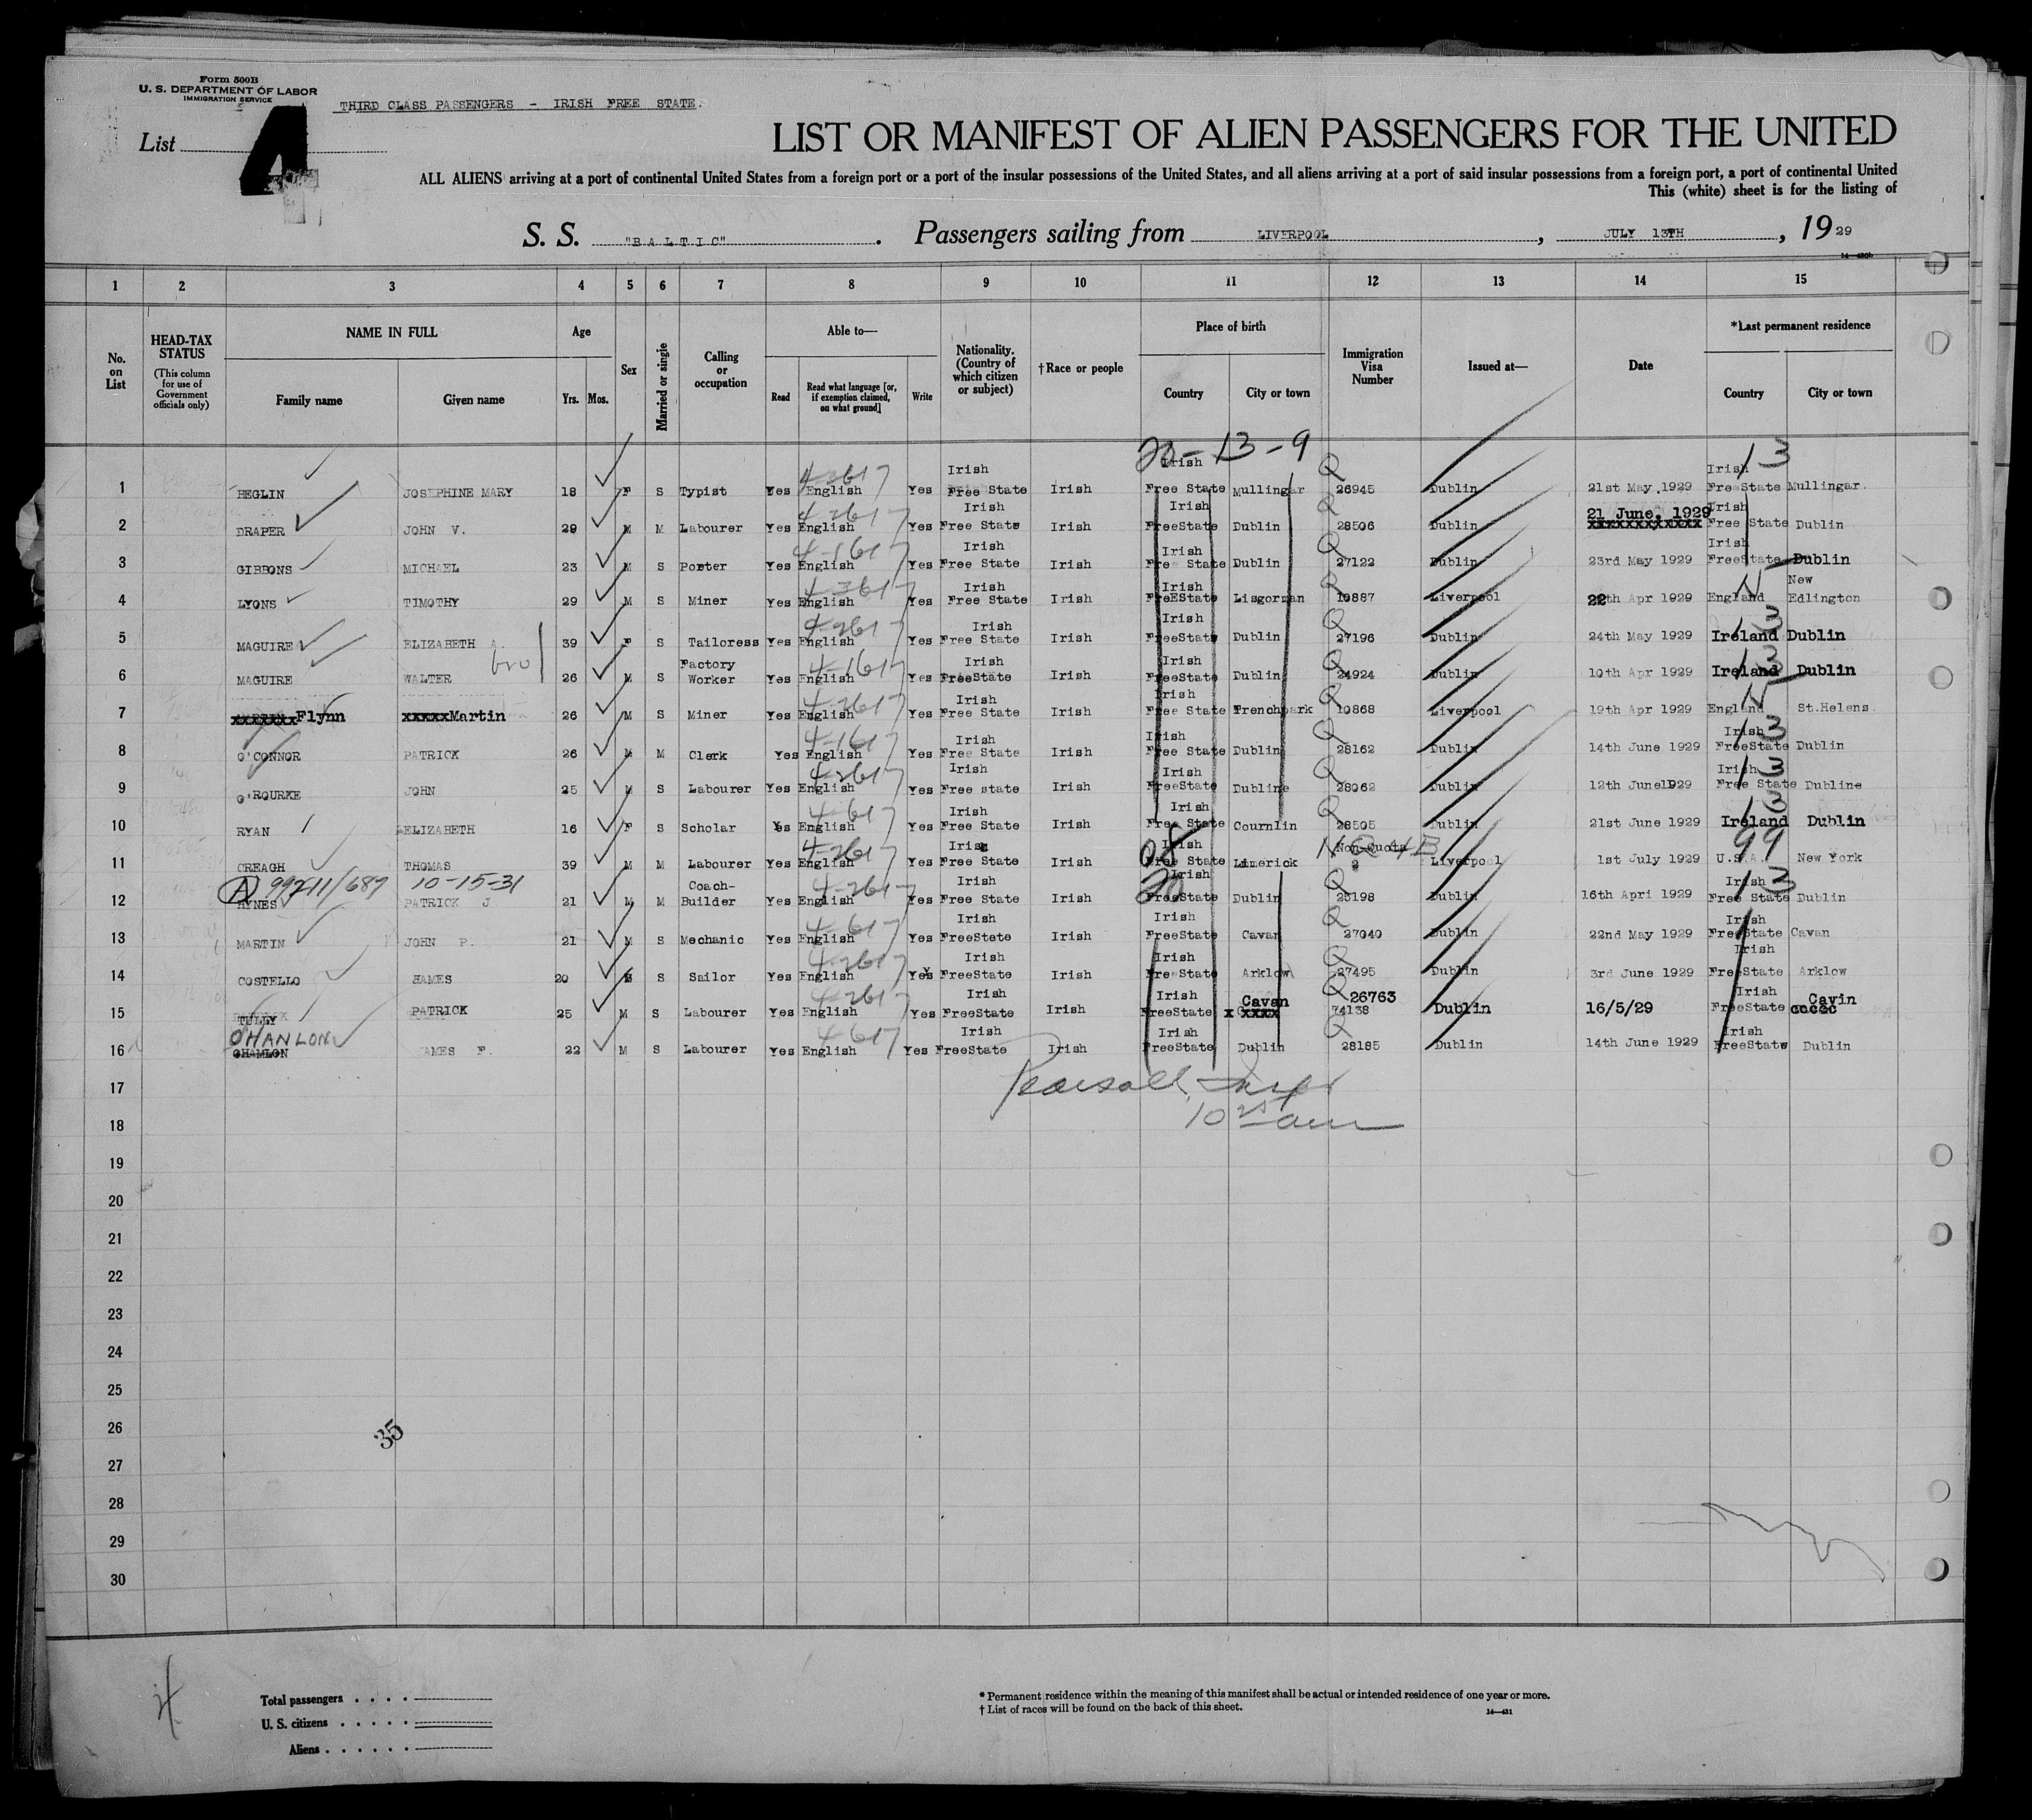 Form 500B
U. S. DEPARTMENT OF LABOR
IMMIGRATION SERVICE
THIRD CLASS PASSENGERS - IRISH FREE STATE.
List 4
LIST OR MANIFEST OF ALIEN PASSENGERS FOR THE UNITED
ALL ALIENS arriving at a port of continental United States from a foreign port or a port of the insular possessions of the United States, and all aliens arriving at a port of said insular possessions from a foreign port, a port of continental United
This (white) sheet is for the listing of
S. S. "BALTIC". Passengers sailing from LIVERPOOL, JULY 13TH, 19 29
14—430b
1 2 3 4 5 6 7 8 9 10 11 12 13 14 15
No. on List
HEAD-TAX STATUS (This column for use of Government officials only)
NAME IN FULL Family name Given name
Age Yrs. Mos.
Sex
Married or single
Calling or occupation
Able to— Read Read what language [or, if exemption claimed, on what ground] Write
Nationality. (Country of which citizen or subject)
†Race or people
Place of birth Country City or town
Immigration Visa Number
Issued at—
Date
*Last permanent residence Country City or town
20-13-9
1 BEGLIN JOSEPHINE MARY 18 F S Typist Yes English Yes Irish Free State Irish Irish Free State Mullingar Q 26945 Dublin 21st May.1929 Irish FreeState Mullingar.
2 DRAPER JOHN V. 29 M M Labourer Yes English Yes Irish Free State Irish Irish FreeState Dublin Q 28506 Dublin 21 June. 1929 xxxxxxxxxxxx Irish Free State Dublin
3 GIBBONS MICHAEL 23 M S Porter Yes English Yes Irish Free State Irish Irish Free State Dublin Q 27122 Dublin 23rd May 1929 Irish FreeState Dublin
4 LYONS TIMOTHY 29 M S Miner Yes English Yes Irish Free State Irish Irish FreEState Lisgorman Q 10887 Liverpool 22th Apr 1929 England New Edlington
5 MAGUIRE ELIZABETH A. 39 F S Tailoress Yes English Yes Irish Free State Irish Irish FreeState Dublin Q 27196 Dublin 24th May 1929 Ireland Dublin
bro
6 MAGUIRE WALTER 26 M S Factory Worker Yes English Yes Irish FreeState Irish Irish FreeState Dublin Q 24924 Dublin 10th Apr 1929 Ireland Dublin
7 xxxxxxx Flynn xxxxx Martin 26 M S Miner Yes English Yes Irish Free State Irish Irish Free State Frenchpark Q 10868 Liverpool 19th Apr 1929 England St.Helens.
8 O'CONNOR PATRICK 26 M M Clerk Yes English Yes Irish Free State Irish Irish Free State Dublin Q 28162 Dublin 14th June 1929 Irish FreeState Dublin
9 O'ROURKE JOHN 25 M S Labourer Yes English Yes Irish Free state Irish Irish FreeState Dubline Q 28062 Dublin 12th June1929 Irish Free State Dubline
10 RYAN ELIZABETH 16 F S Scholar Yes English Yes Irish Free State Irish Irish Free State Cournlin Q 28505 Dublin 21st June 1929 Ireland Dublin
11 CREAGH THOMAS 39 M M Labourer Yes English Yes Irish Free State Irish 08 Irish Free State Limerick Non-Quota 2 Liverpool 1st July 1929 U.S.A. 99 New York
(A) 99211/687 10-15-31
12 HYNES PATRICK J 21 M M Coach-Builder Yes English Yes Irish Free State Irish 20 Irish FreeState Dublin Q 25198 Dublin 16th Apri 1929 Irish Free State Dublin
13 MARTIN JOHN P. 21 M S Mechanic Yes English Yes Irish FreeStete Irish Irish FreeState Cavan Q 27040 Dublin 22nd May 1929 Irish FreeState Cavan
14 COSTELLO JAMES 20 M S Sailor Yes English Yes Irish FreeState Irish Irish FreeState Arklow Q 27495 Dublin 3rd June 1929 Irish FreeState Arklow
15 TULLY PATRICK 25 M S Labourer Yes English Yes Irish FreeState Irish Irish FreeState Cavan x xxxx Q 26763 74138 Dublin 16/5/29 Irish FreeState Cavin
16 O'HANLON OHAMLON JAMES F. 22 M S Labourer Yes English Yes Irish FreeState Irish Irish FreeState Dublin Q 28185 Dublin 14th June 1929 Irish FreeState Dublin
17 Pearsall, Inspr
18
19
20
21
22
23
24
25
26
35
27
28
29
30
4
Total passengers
U. S. citizens
Aliens
* Permanent residence within the meaning of this manifest shall be actual or intended residence of one year or more.
† List of races will be found on the back of this sheet.
14—431